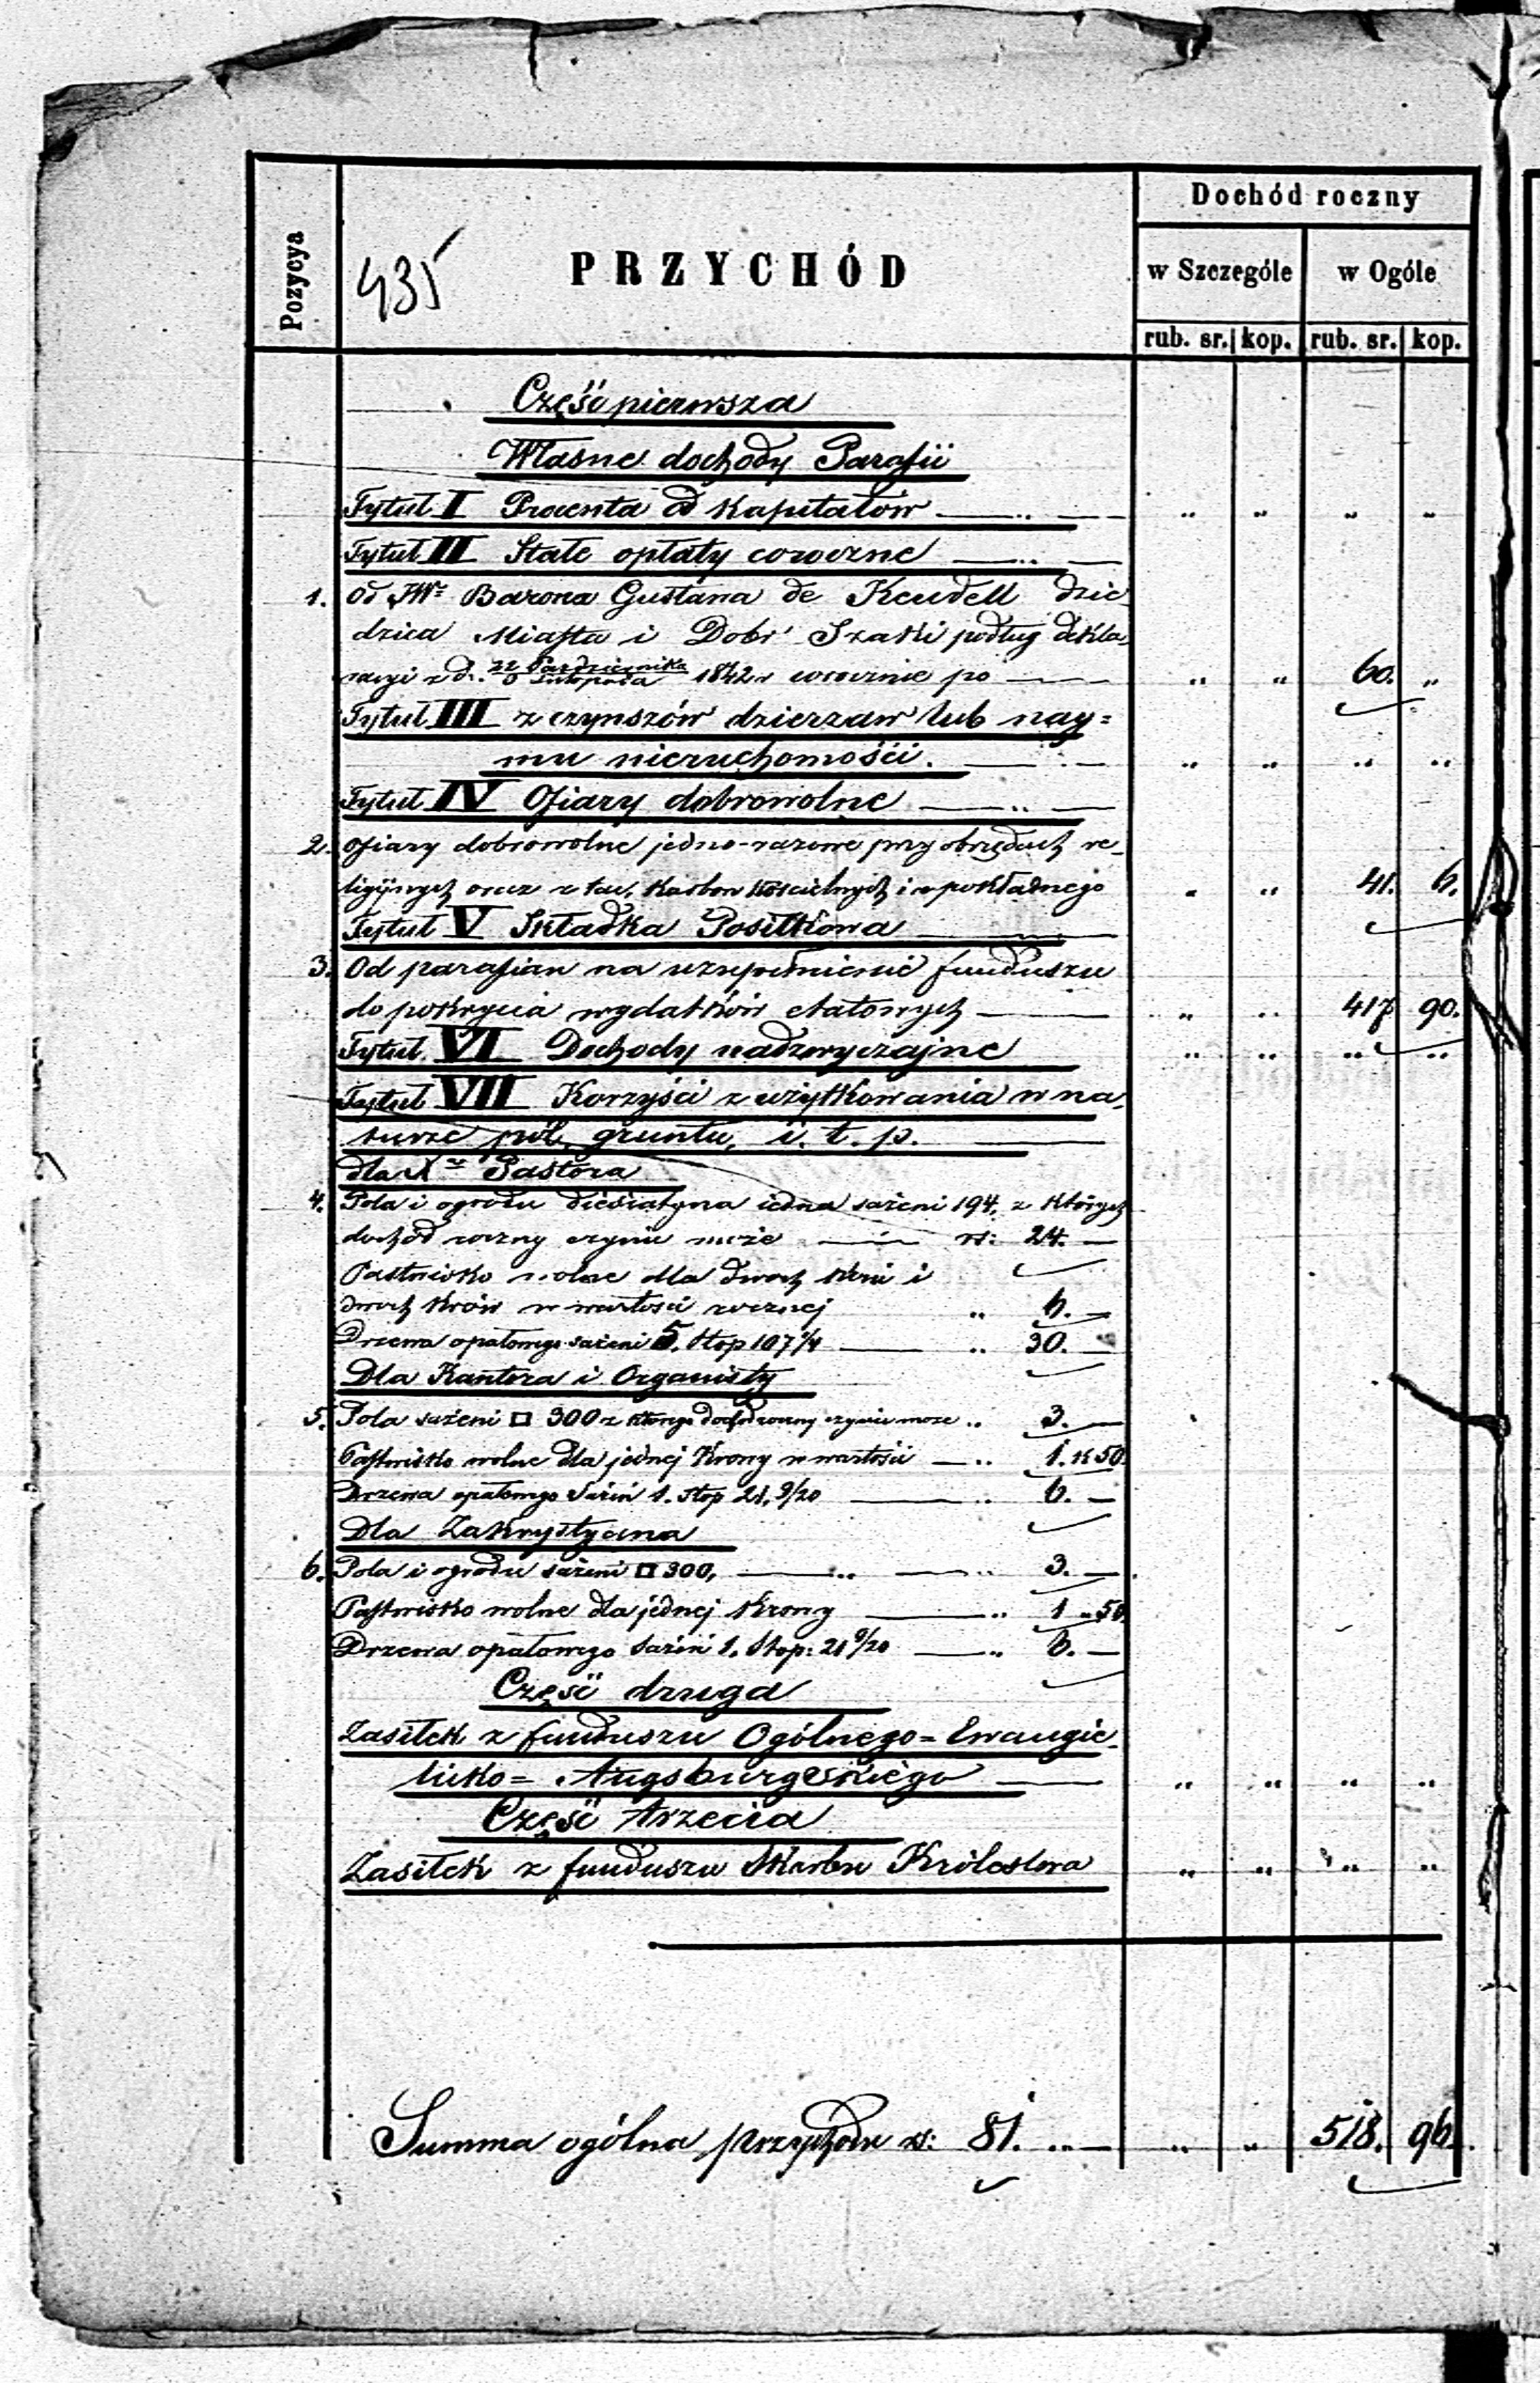 Dochód roczny
Pozycya
435
PRZYCHÓD
w Szczególe w Ogóle
rub. sr. kop. rub. sr. kop.
Część pierwsza
Własne dochody Parafii
Tytuł I Procenta od Kapitałów — „ — „ „ „ „
Tytuł II Stałe opłaty coroczne — „ —
1. Od JW: Barona Gustawa de Keudell dzie-
dzica Miasta i Dobr Szaki podług dekla-
racyi z d. 22 Października 1842 r corocznie po — „ „ 60. „
Listopada
Tytuł III z czynszów dzierzaw lub nay=
mu nieruchomości. — „ „ „ „
Tytuł IV Ofiary dobrowolne — „ —
2. Ofiary dobrowolne jedno-razowe przy obrzędach re-
ligijnych oraz z tac, Karbon Kościelnych i pokładnego „ „ 41. 6.
Tytuł V Składka Posiłkowa —
3. Od parafian na uzupełnienie funduszu
do pokrycia wydatków etatowych — „ „ 417 90.
Tytuł VI Dochody nadzwyczajne „ „ „ „
Tytuł VII Korzyści z użytkowania w na-
turze pól, gruntu, i. t. p. —
dla X Pastora
4. Pola i ogrodu diesiatyna iedna sażeni 194, z których
dochód roczny czynić może — rs: 24. —
Pastwisko wolne dla dwoch Koni i
dwoch Krów w wartości rocznej „ 6. —
Drzewa opałowego sażeni 5. Stop 107 1/4 — „ 30. —
Dla Kantora i Organisty
5. Pola sażeni □ 300 z którego dochód roczny czynić może „ 3. —
Pastwisko wolne dla jednej Krowy w wartości — „ 1. K 50.
Drzewa opałowego Sażeń 1. stop 21, 9/20 — „ 6. —
Dla Zakrystyana
6. Pola i ogrodu sażeni □ 300, — „ — „ 3. —
Pastwisko wolne dla jednej Krowy — „ 1 „ 50.
Drzewa opałowego Sażeń 1. Stop: 21 9/20 — „ 6. —
Część druga
Zasiłek z funduszu Ogólnego = Ewangie-
licko = Augsburgskiego — „ „ „ „
Część trzecia
Zasiłek z funduszu Skarbu Królestwa „ „ „ „
Summa ogólna przychodu rs: 81. „ — „ „ 518. 96.